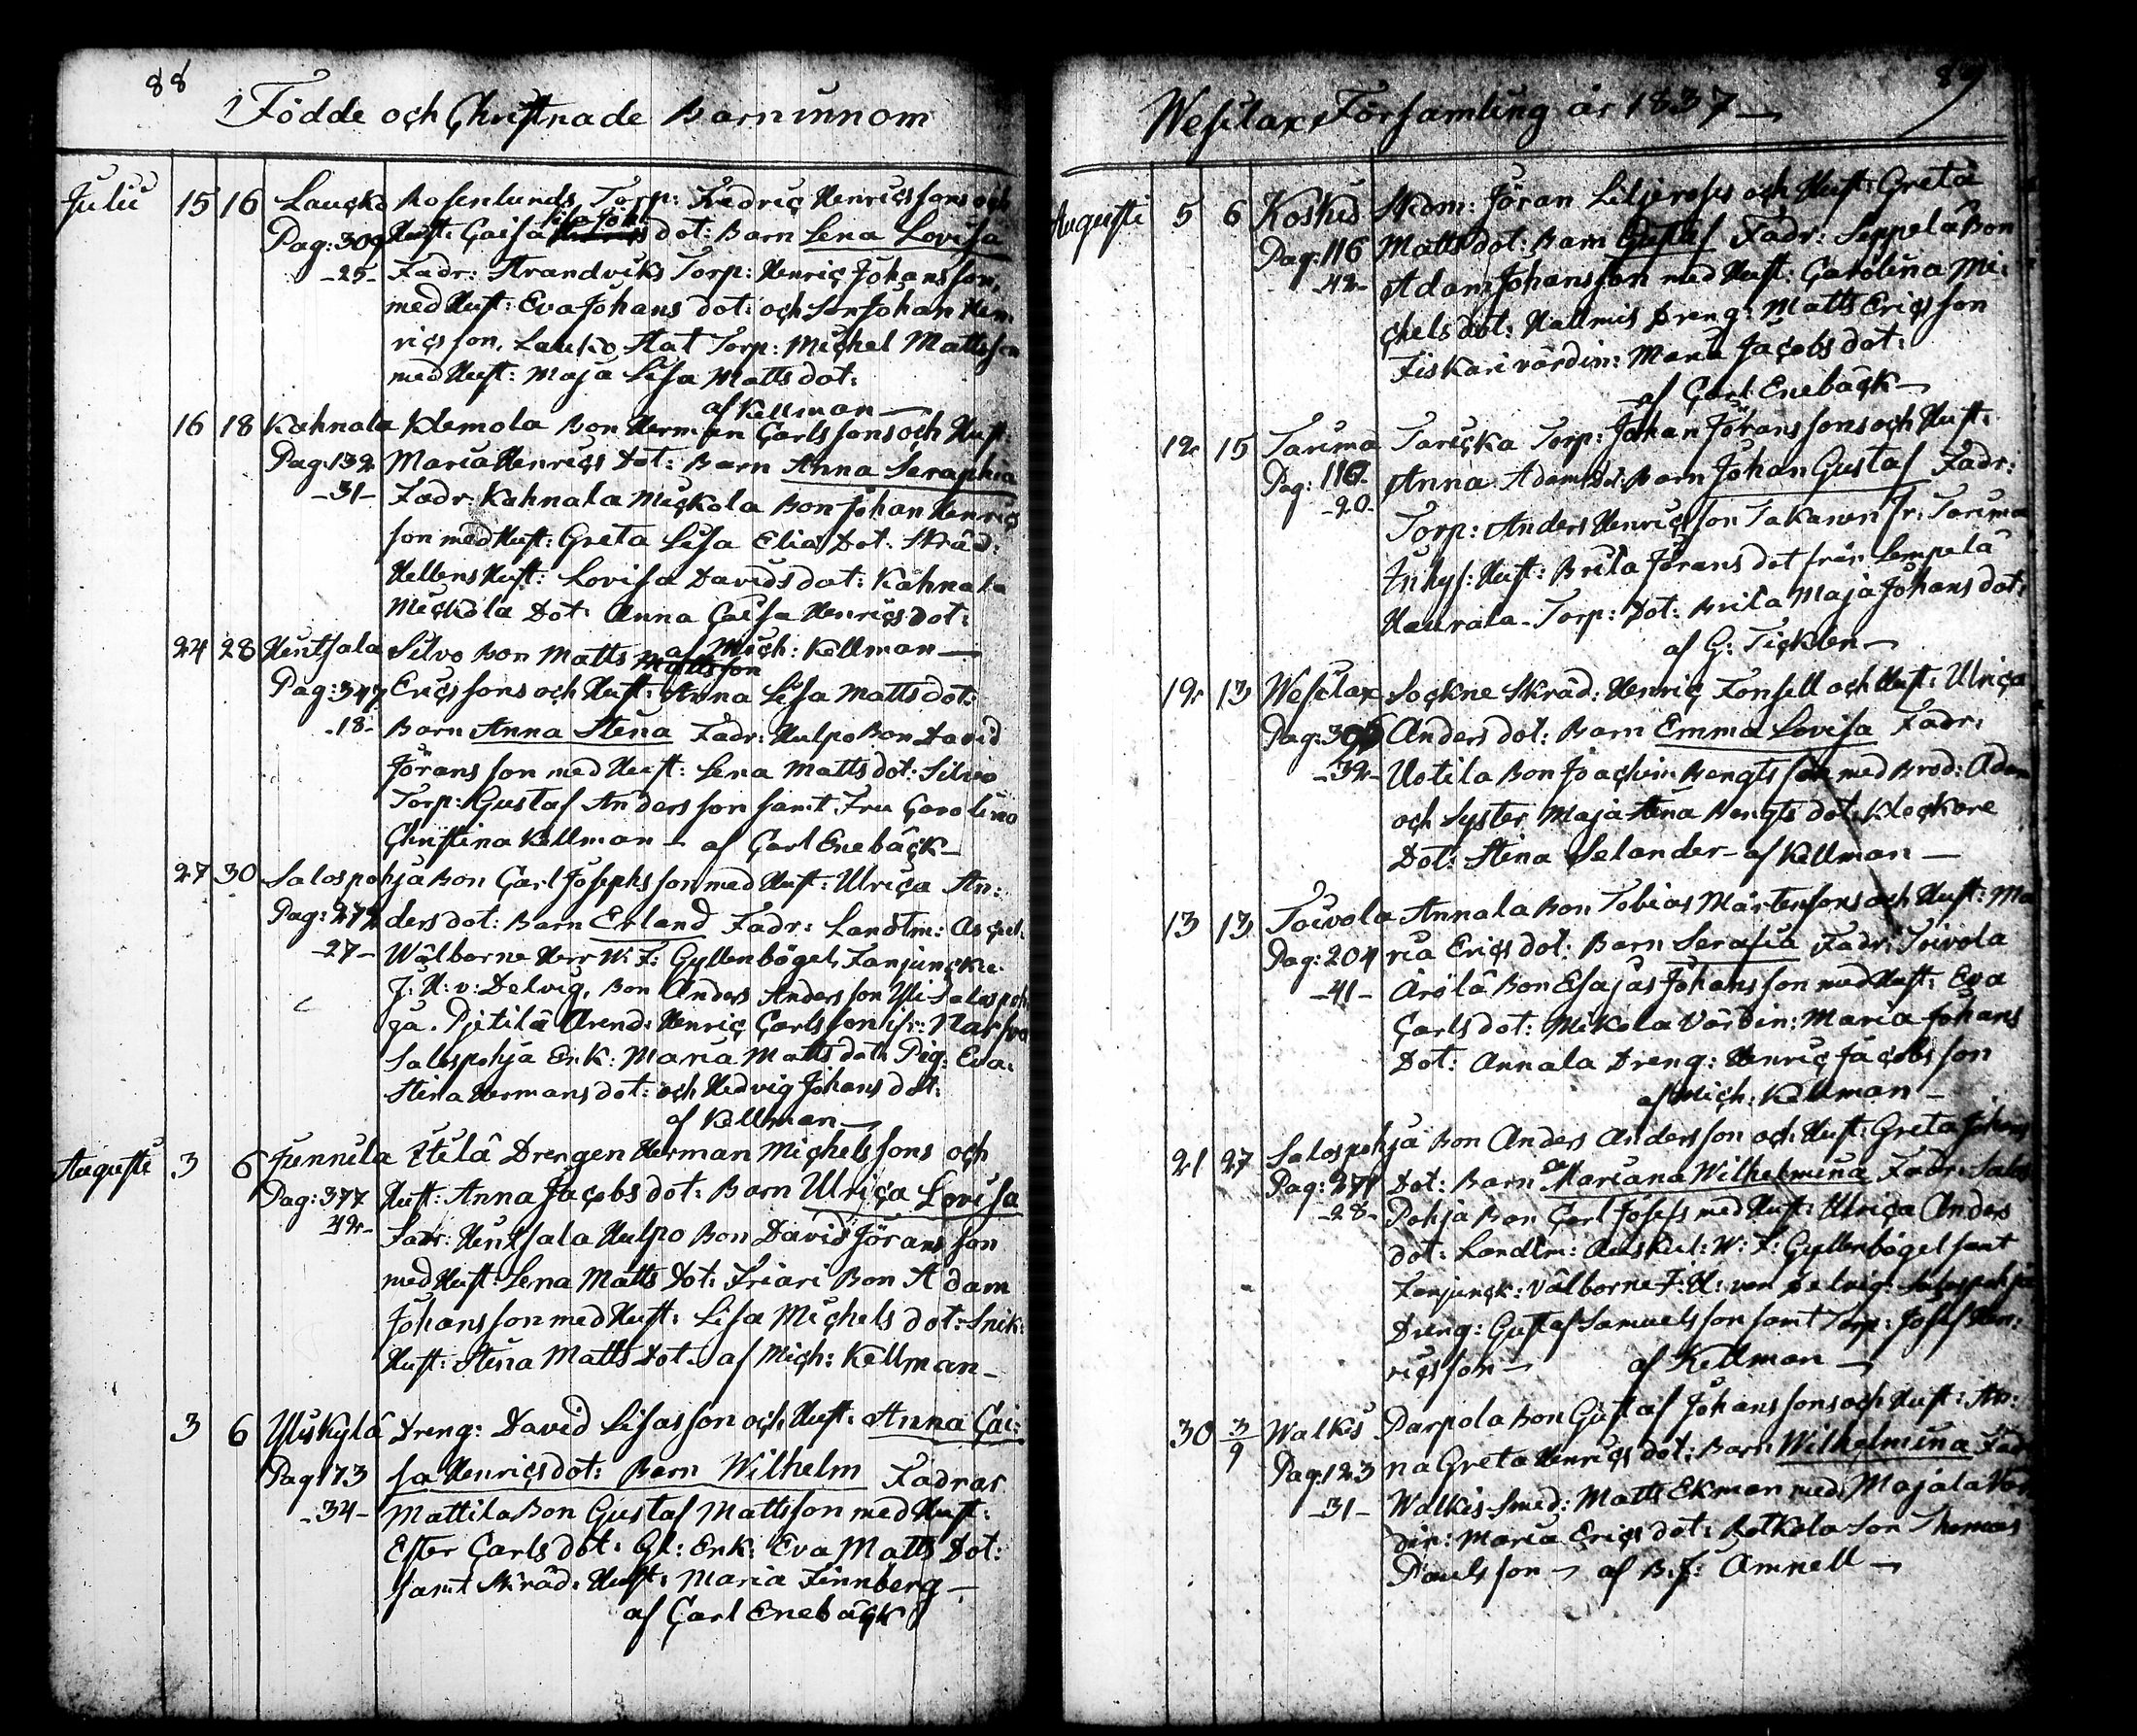 88
Födde och Christnade Barn innom
Julii 15 16 Laucko Rosenlunds Torp: Fredric Henricssons och
Pag: 309 Hust: Caisa dot: Barn Lena Lovisa
-25- Fadr: Strandviks Torp: Henric Johansson,
med Hust: Eva Johans dot: och Son Johan Hen
ricsson, Lauko Stat Torp: Michel Mattsson
med Hust: Maja Lisa Matts dot:
af Kellman —
16 18 Kahnala Klemola Bon Herman Carlssons och Hust:
Pag: 132 Maria Henrics Dot: Barn Anna Seraphia
-31- Fadr: Kahnala Mickola Bon Johan Henric
son med Hust: Greta Lisa Elia Dot: Skräd:
Hellens Hust: Lovisa Davids dot: Kahnala
Mickola Dot: Anna Caisa Henrics dot:
af Mich: Kellman —
24 28 Hentsala Silvo Bon Matts Mattsson
Pag: 347 Ericssons och Hust: Anna Lisa Matts dot:
-18- Barn Anna Stena Fadr: Hulpo Bon David
Jöransson med Hust: Lena Matts dot: Silvo
Torp: Gustaf Andersson samt Fru Carolina
Christina Kellman - af Carl Enebäck -
27 30 Salospohja Bon Carl Josephsson med Hust: Ulrica An:
Pag: 272 ders dot: Barn Erland Fadr: Landtm: Ascul:
-27- Wälborne Herr W: F: Gyllenbögel, Fanjuncke:
J: H: v: Delvig, Bon Anders Andersson Yli Salospoh
ja. Pjetilä Arend: Henric Carlsson ifr: Narfva
Salospohja Enk: Maria Matts dot: Pig: Eva
Stina Hermans dot: och Hedvig Johans dot:
af Kellman —
Augusti 3 6 Junnila Itilä Drengen Herman Michelssons och
Pag: 377 Hust: Anna Jacobs dot: Barn Ulrica Lovisa
42- Fadr: Hentsala Hulpo Bon David Jöransson
med Hust: Lena Matts Dot: Friari Bon Adam
Johansson med Hust: Lisa Michels dot: Snik:
Hust: Stina Matts Dot: af Mich: Kellman -
3 6 Yliskylä Dreng: David Lisasson och Hust: Anna Cai:
Pag 173 sa Henrics dot: Barn Wilhelm Fadrar
-34- Mattila Bon Gustaf Mattsson med Hust:
Ester Carls dot: Gl: Enk: Eva Matts Dot:
samt Skräd: Hust: Maria Finnberg -
af Carl Enebäck
89
Wesilax Församling år 1837 —
Augusti 5 6 Koskis Skidm: Jöran Liljeroses och Hust: Greta
Pag: 116 Matts dot: Barn Gustaf Fadr: Seppelä Bon
-42- Adam Johansson med Hust: Carolina Mi:
chels dot: Hallmis Dreng: Matts Ericsson
Fiskari värdin: Maria Jacobs dot:
af Carl Enebäck -
12 15 Tarima Taricka Torp: Johan Jöranssons och Hust:
Pag: 116 Anna Adams Dot: Barn Johan Gustaf Fadr:
-20- Torp: Anders Henricsson Takanen fr: Tarima
Inhys: Hust: Brita Jörans dot från Lempelä
Haurala Torp: Dot: Brita Maja Johans dot:
af G: Ticklen -
12 13 Wesilax Sockne Skräd: Henric Fonsell och Hust: Ulrica
Pag: 305 Anders dot: Barn Emma Lovisa Fadr:
-32- Uotila Bon Joachim Bengtsson med Brod: Adam
och Syster Maja Stina Bengts dot: Klockare
Dot: Stina Selander - af Kellman —
13 13 Toivola Annala Bon Tobias Mårtenssons och Hust: Ma
Pag: 204 ria Erics dot: Barn Serafia Fadr: Toivola
-41- Arölä Bon Esajas Johansson med Hust: Eva
Carls dot: Mikola Värdin: Maria Johans
Dot: Annala Dreng: Henric Jacobsson
af Mich: Kellman -
21 27 Salospohja Bon Anders Andersson och Hust: Greta Johans
Pag: 271 Dot: Barn Mariana Wilhelmina Fadr: Salos
-28- Pohja Bon Carl Josefs med Hust: Ulrica Anders
dot: Landtm: Auskul: W: F: Gyllenbögel samt
Fanjunck: Välborne J: H: von Delvig: Salospohja
Dreng: Gustaf Samuelsson samt Torp: Josef Hen:
ricsson - af Kellman -
30 3/9 Walkis Parpola Bon Gustaf Johanssons och Hust: An:
Pag: 123 na Greta Henrics dot: Barn Wilhelmina Fadr
-31- Walkis Smed: Matts Ekman med Majala Vär
din: Maria Erics dot: Rotkola Son Thomas
Paulsson - af B: J: Amnell -